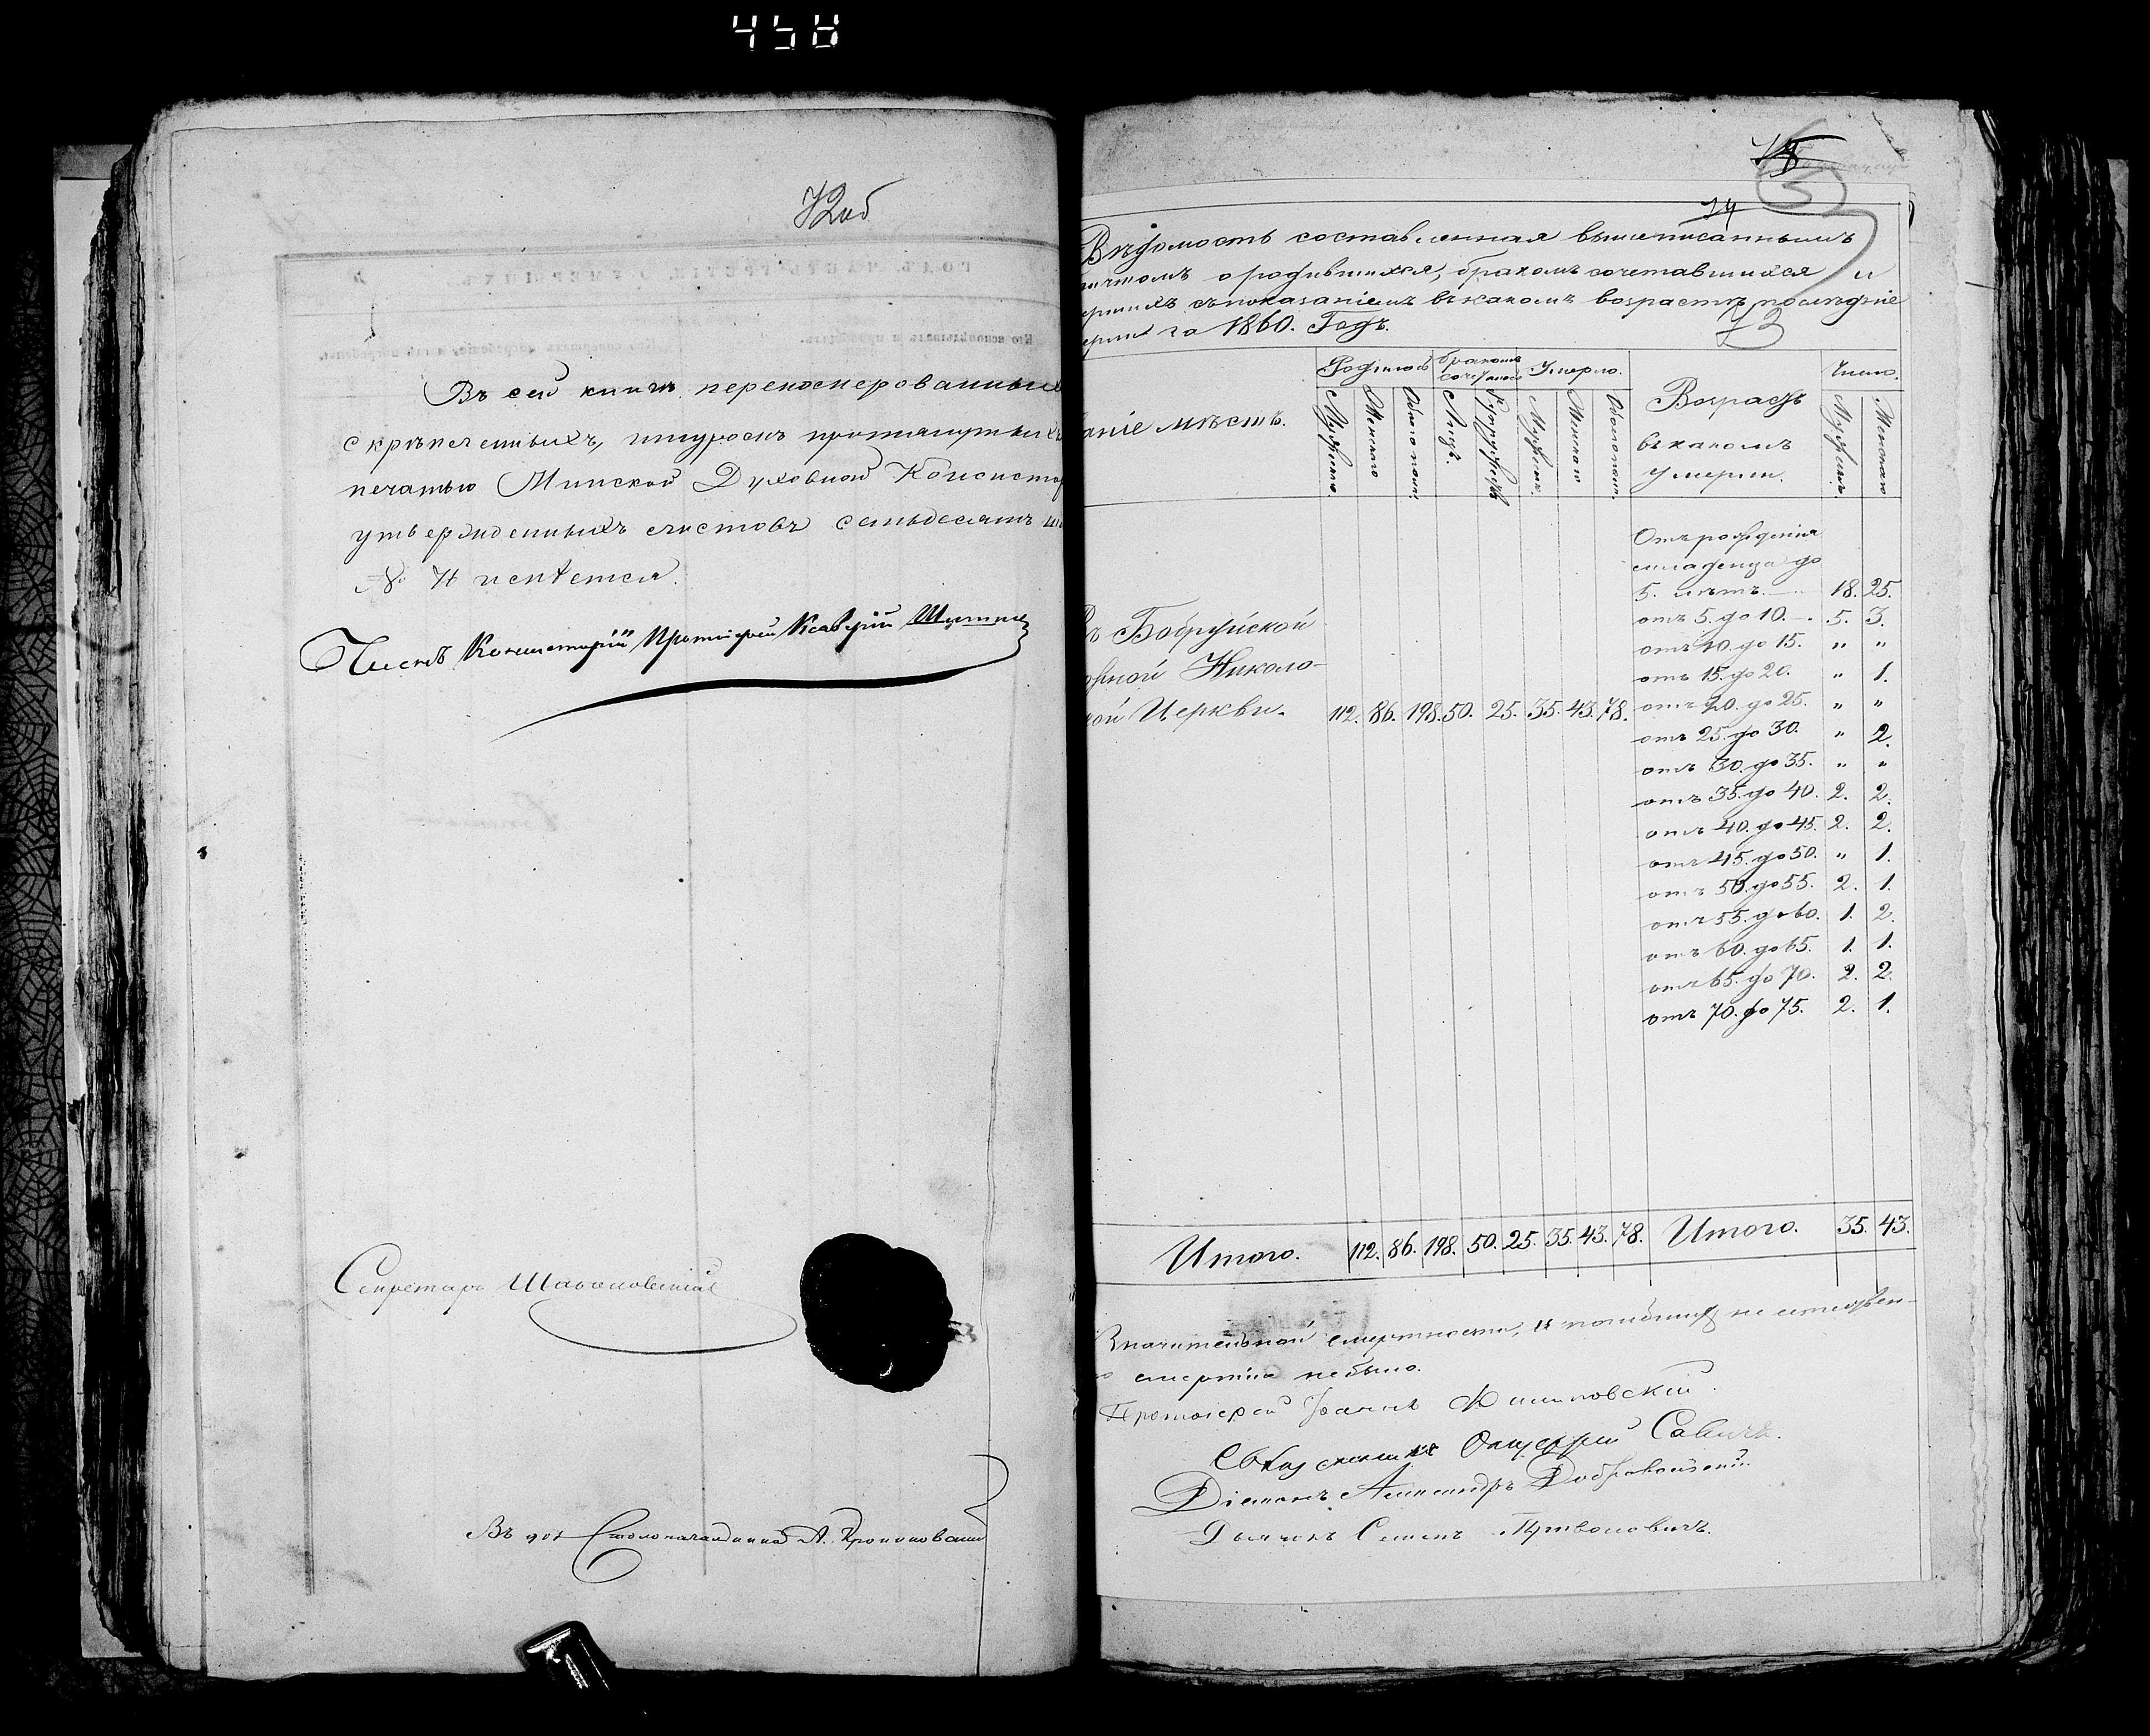 458
72об
Въ сей книгѣ перенумерованныхъ
скрѣпленныхъ, шнуромъ протянутыхъ
печатью Минской Духовной Консистор
утвержденныхъ листовъ семьдесятъ
№ числится.
Членъ Консисторіи Протоіерей
Секретарь
Въ дол. Столоначальника А.
74
Вѣдомость составленная вышеписаннымъ
причтомъ о родившихся, бракомъ сочетавшихся и
ершихъ съ показаніемъ въ какомъ возрастѣ послѣдніе
ерли за 1860. Годъ.
73
аніе мѣстъ.
Родилось
Бракомъ сочеталось
Умерло.
Возрастъ
въ какомъ
умерли.
Число.
Мужеска
Женска
Обоего пола.
Лицъ.
Супружествъ
Мужеска
Женска
Обоего пола.
Мужеска
Женска
Отъ рожденія
младенца до
5. лѣтъ. 18. 25.
отъ 5. до 10. 5. 3.
отъ 10 до 15. " "
отъ 15. до 20. " 1.
отъ 20. до 25. " "
отъ 25. до 30. " 2.
отъ 30. до 35. " "
отъ 35. до 40. 2. 2.
отъ 40. до 45. 2. 2.
отъ 45. до 50. " 1.
отъ 50. до 55. 2. 1.
отъ 55. до 60. 1. 2.
отъ 60. до 65. 1. 1.
отъ 65. до 70. 2. 2.
отъ 70. до 75. 2. 1.
Бобруйской
орной Николо-
ой Церкви. 112. 86. 198. 50. 25. 35. 43. 78.
Итого. 112. 86. 198. 50. 25. 35. 43. 78. Итого. 35. 43.
Значительной смертности, и погибших не естествен-
смертію небыло.
Протоіерей Іоаннъ
Священникъ Савичъ.
Діаконъ Александръ Добровольскій
Дьячокъ Семенъ